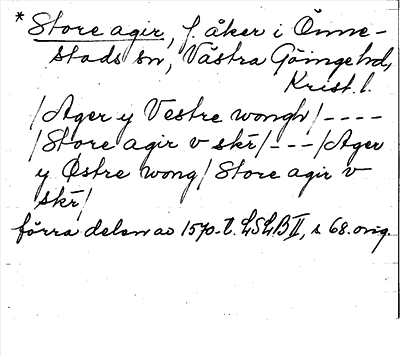 * Store agir, f. åker i Önne-
stads sn, Västra Göinge hd,
Krist. l.
/Ager y Vestre wongh/----
/Store agir v skr/---/Ager
y Østre wong/Store agir v
skr/
förra delen av 1570-t. LSLB II, s 68. orig.